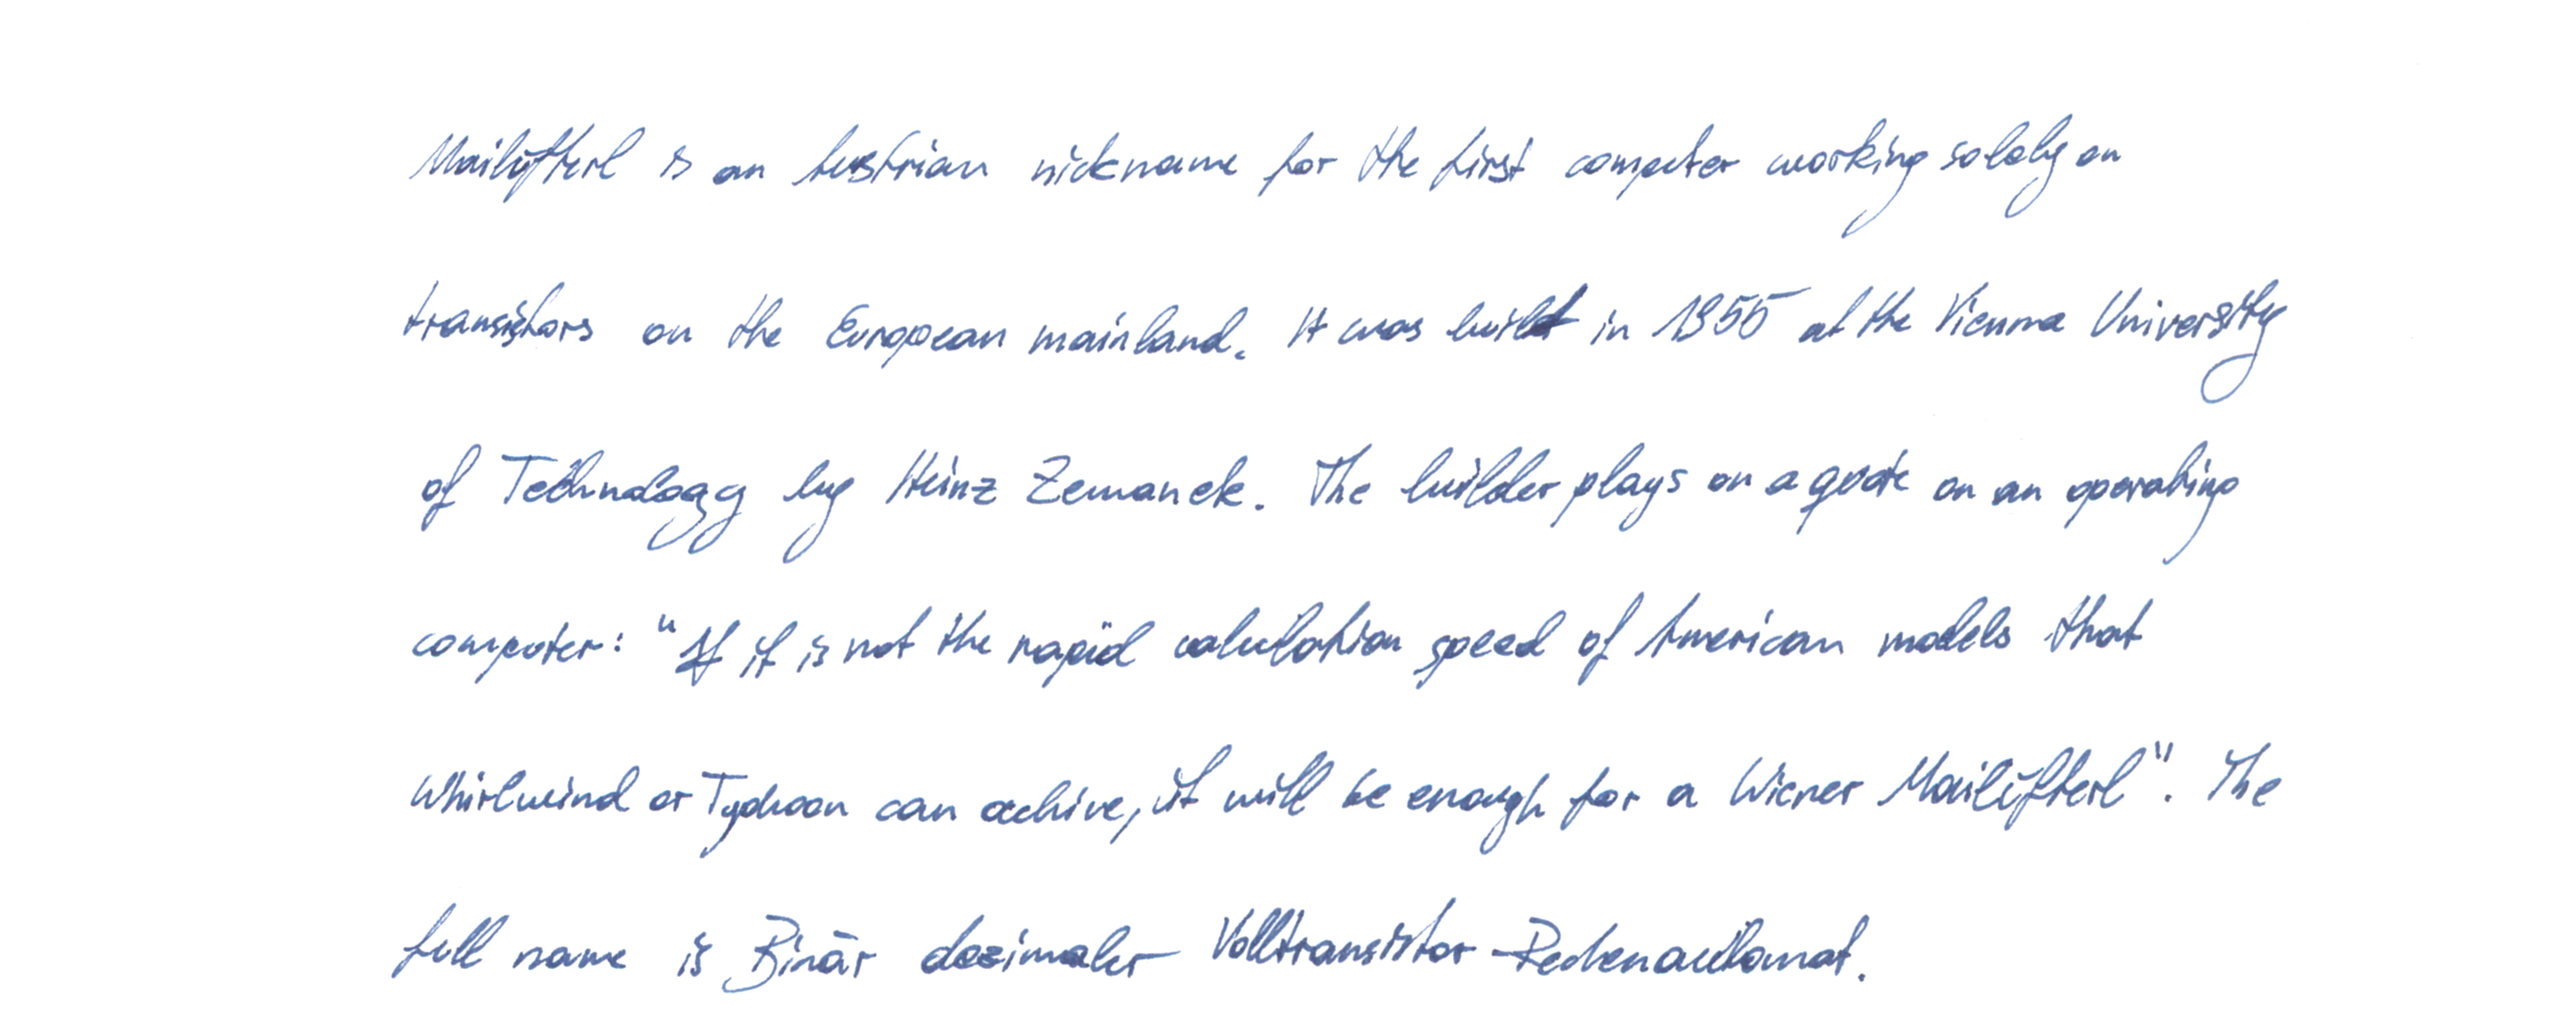 Mailüfterl is an Austrian nickname for the first computer working solely on
transistors on the European mainland. It was built in 1955 at the Vienna University
of Technology by Heinz Zemanek. The builder plays on a quote on an operating
computer: "If it is not the rapid calculation speed of American models that
Whirlwind or Typhoon can achive, it will be enough for a Wiener Mailüfterl". The
full name is Binär dezimaler Volltransistor-Rechenautomat.